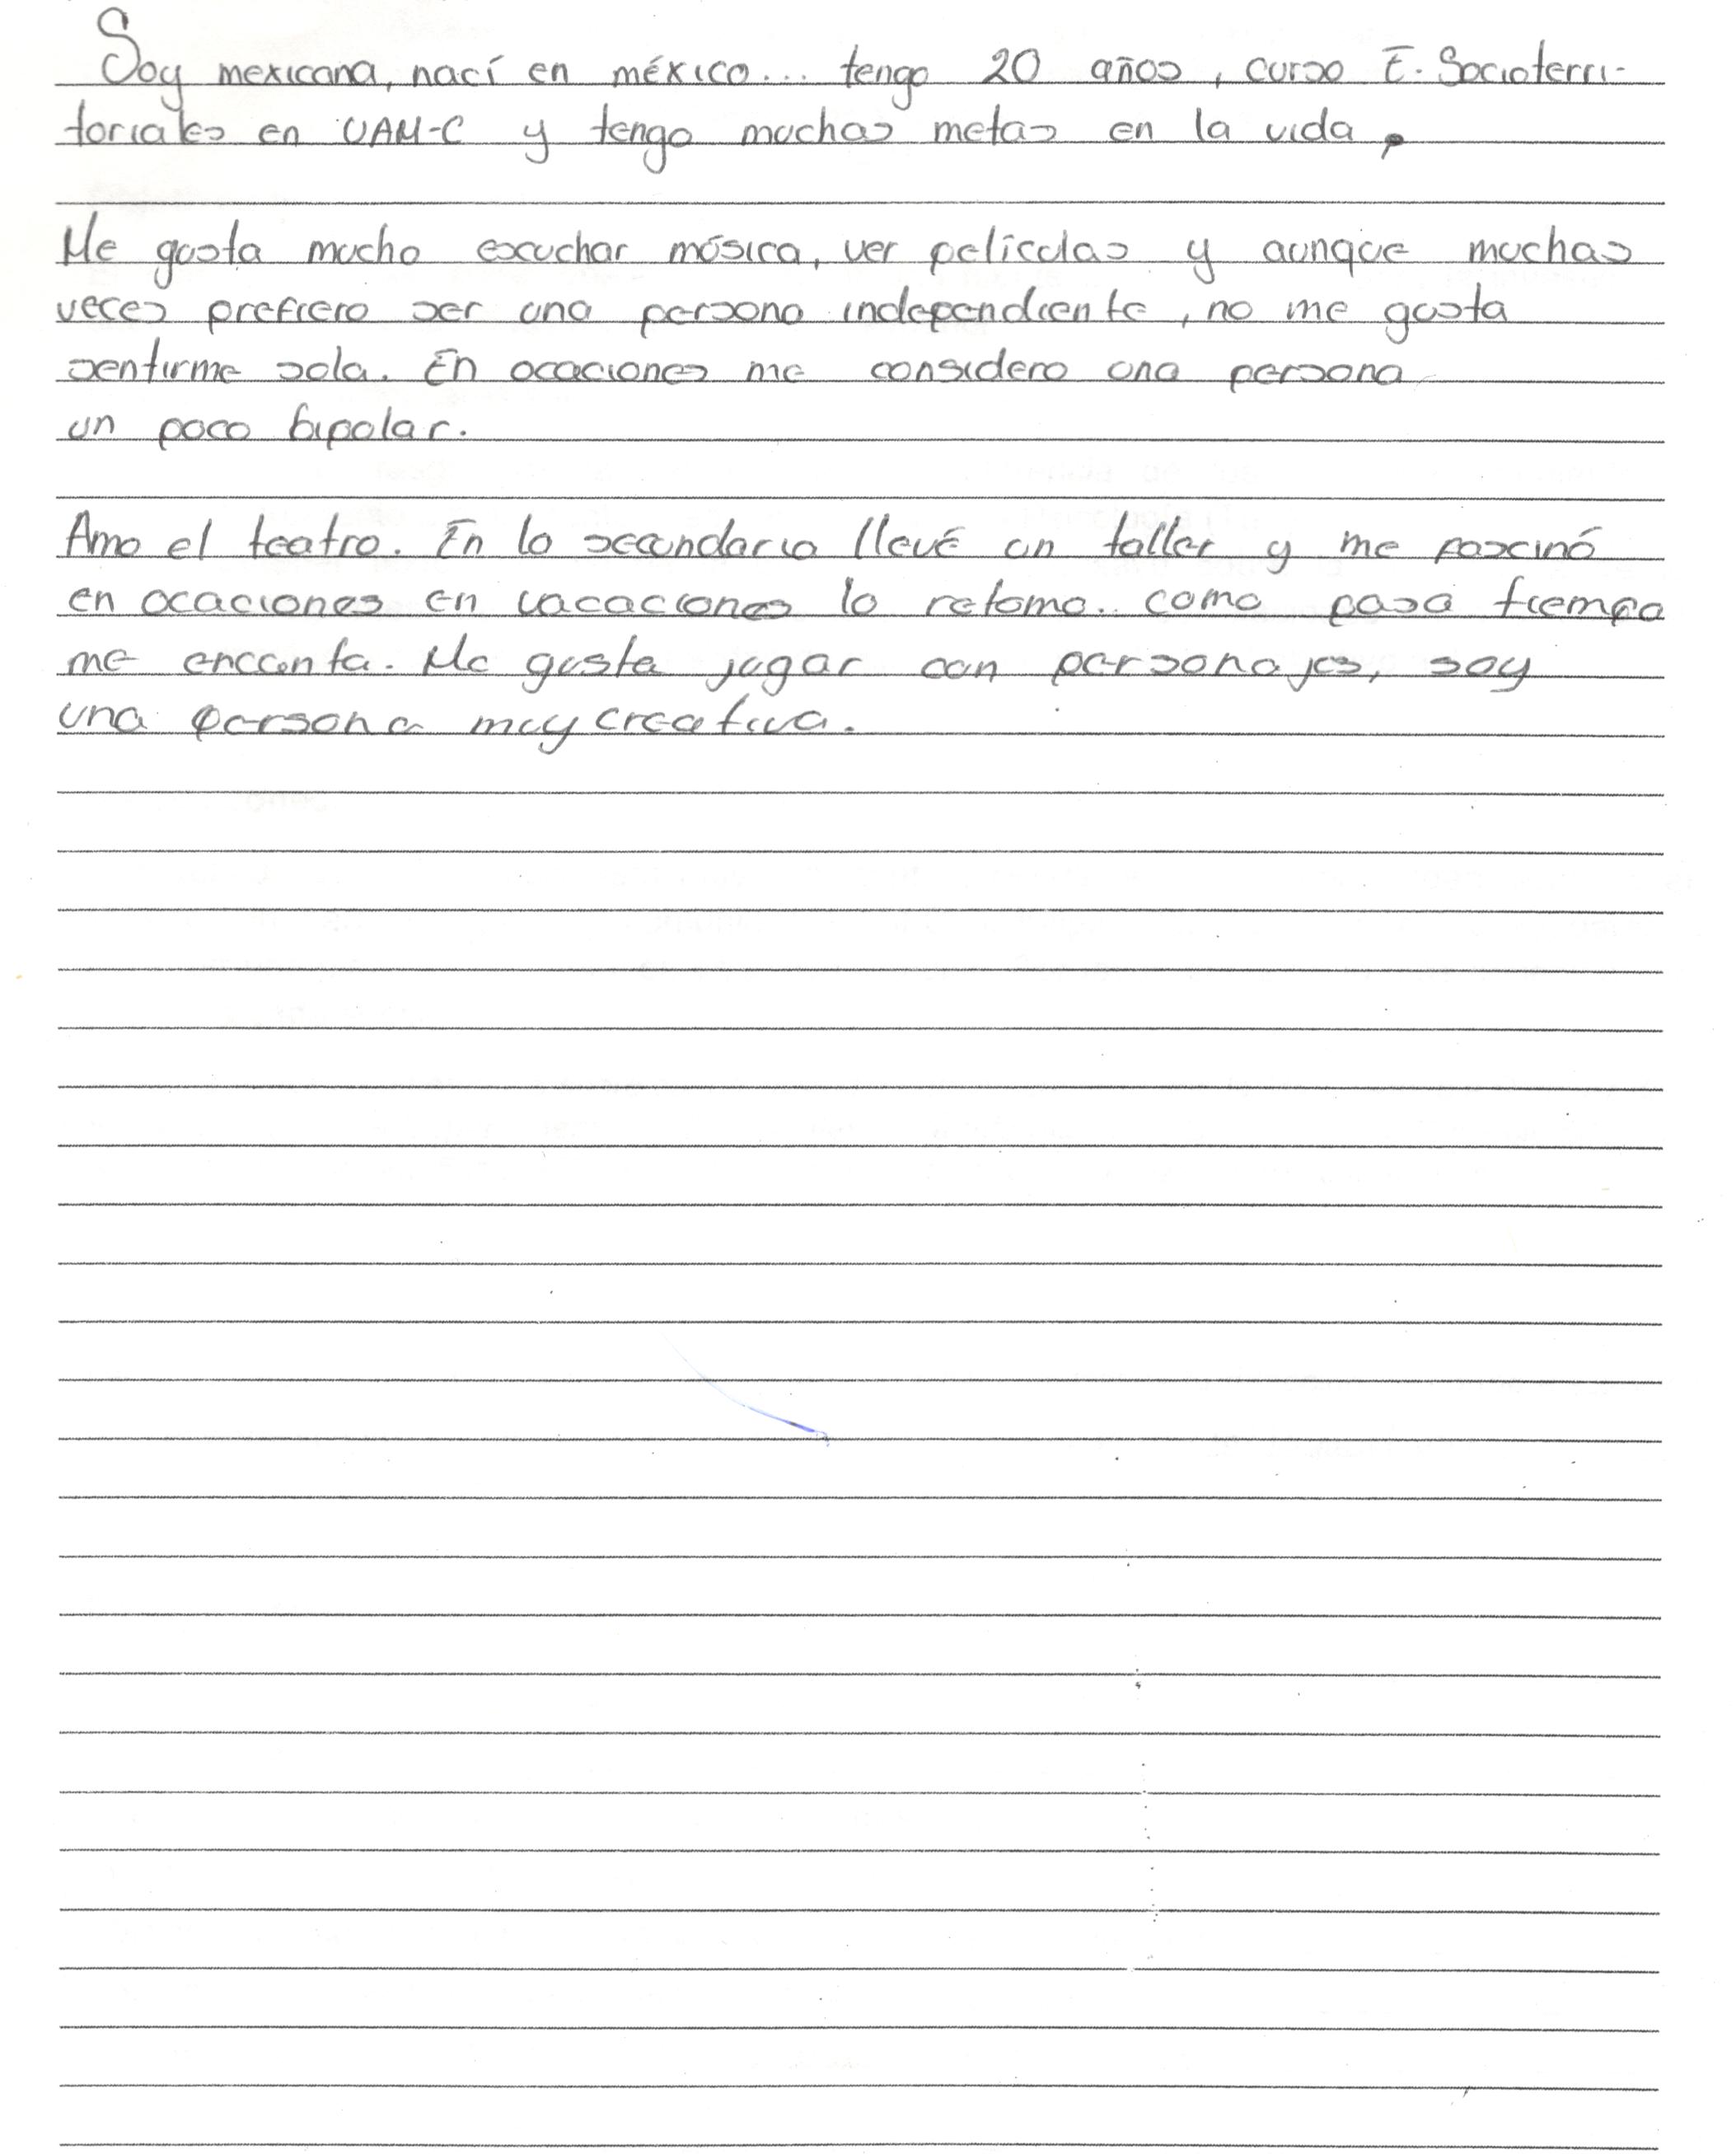 Soy mexicana, nací en méxico... tengo 20 años, curso E. Socioterri-
toriales en UAM-C y tengo muchas metas en la vida.
Me gusta mucho escuchar música, ver películas y aunque muchas
veces prefiero ser una persona independiente, no me gusta
sentirme sola. En ocaciones me considero una persona
un poco bipolar.
Amo el teatro. En la secundaria llevé un taller y me fascinó
en ocaciones en vacaciones lo retomo. como pasa tiempo
me encanta. Me gusta jugar con personajes, soy
una persona muy creativa.